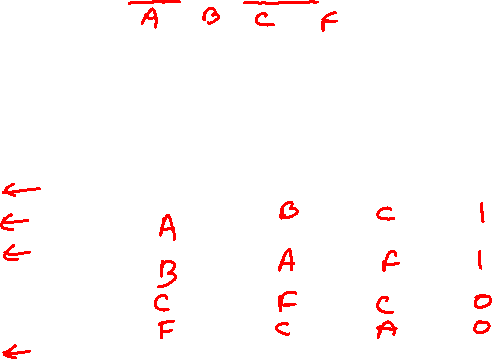 A B C F
A B C 1
B A F 1
C F C 0
F C A 0